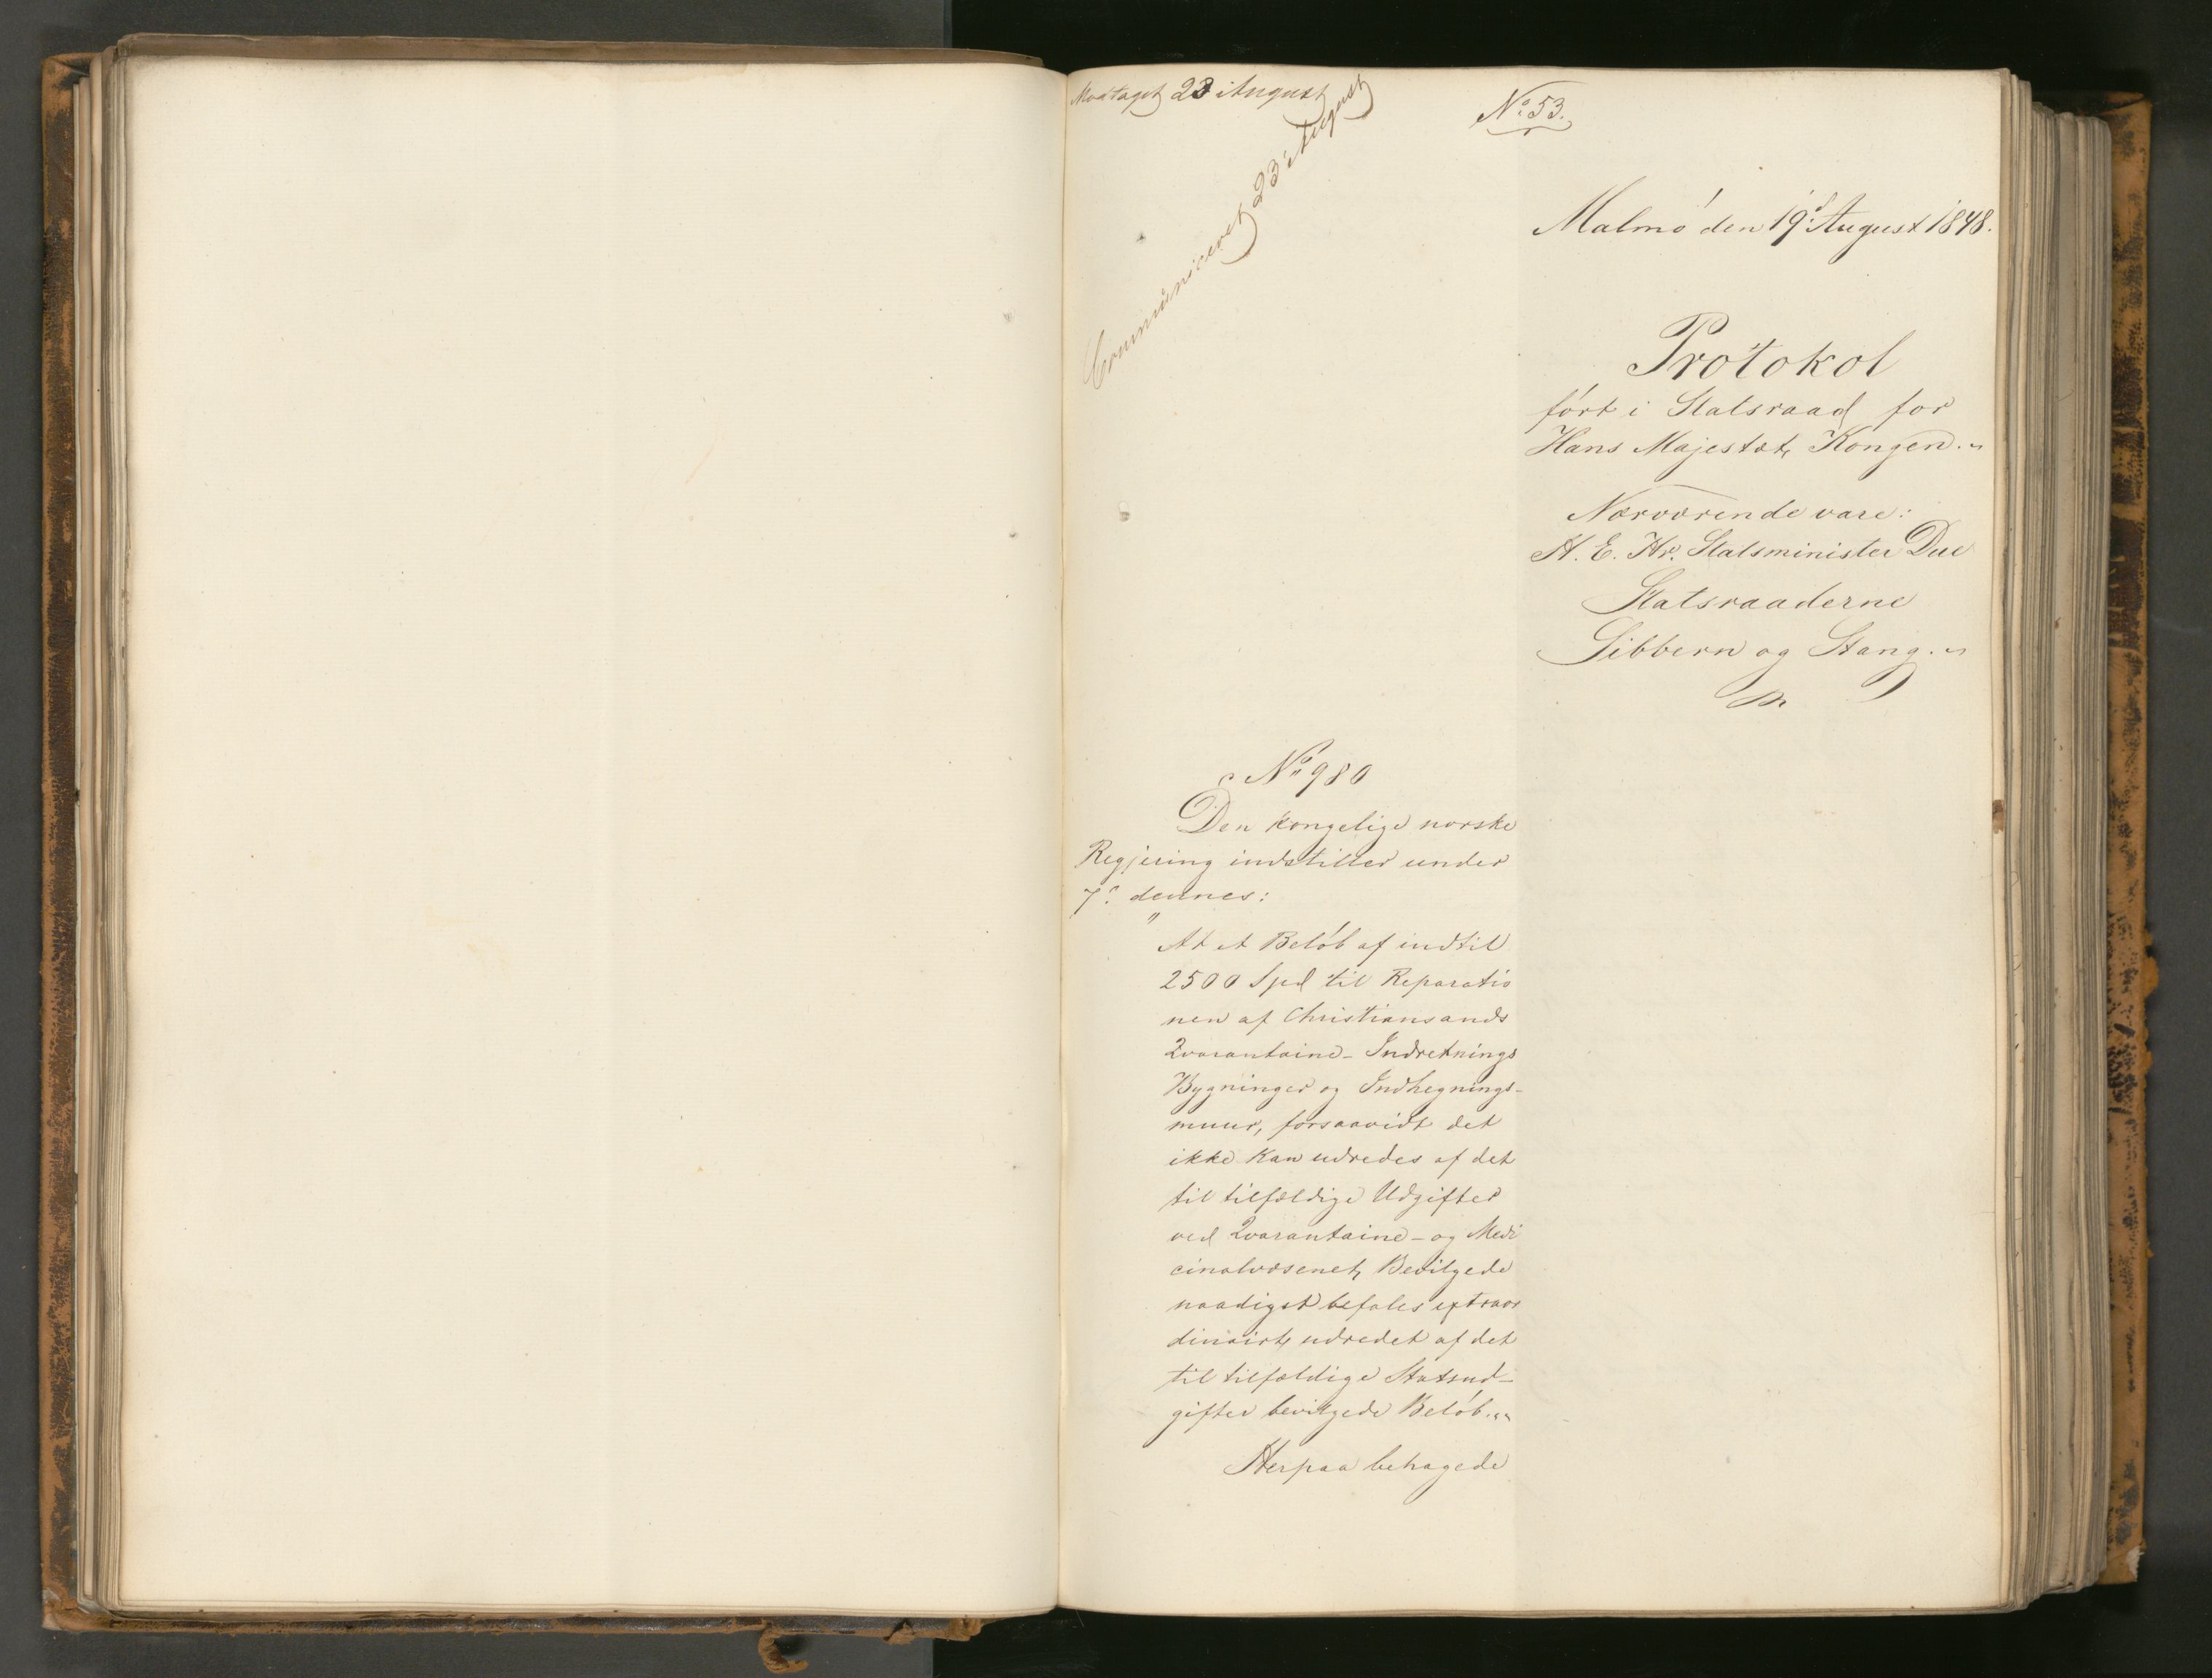 Modtaget 23 August
Communiceret 23 August
No 53.
Malmö den 19d August 1848.
Protokol
ført i Statsraad for
Hans Majestæt Kongen.
Nærværende vare:
H. E. Hr. Statsminister Due
Statsraaderne
Sibbern og Stang.
No 980
Den kongelige norske
Regjering indstiller under
7d dennes:
"At et Beløb af indtil
2500 Spd til Reparatio
nen af Christiansands
Qvarantaine-Indretnings
Bygninger og Indhegnings-
muur, forsaavidt det
ikke kan udredes af det
til tilfældige Udgifter
ved Qvarantaine- og Medi
cinalvæsenet Bevilgede
naadigst befales extraor
dinairt udredet af det
til tilfældige Statsud-
gifter bevilgede Beløb."
Herpaa behagede